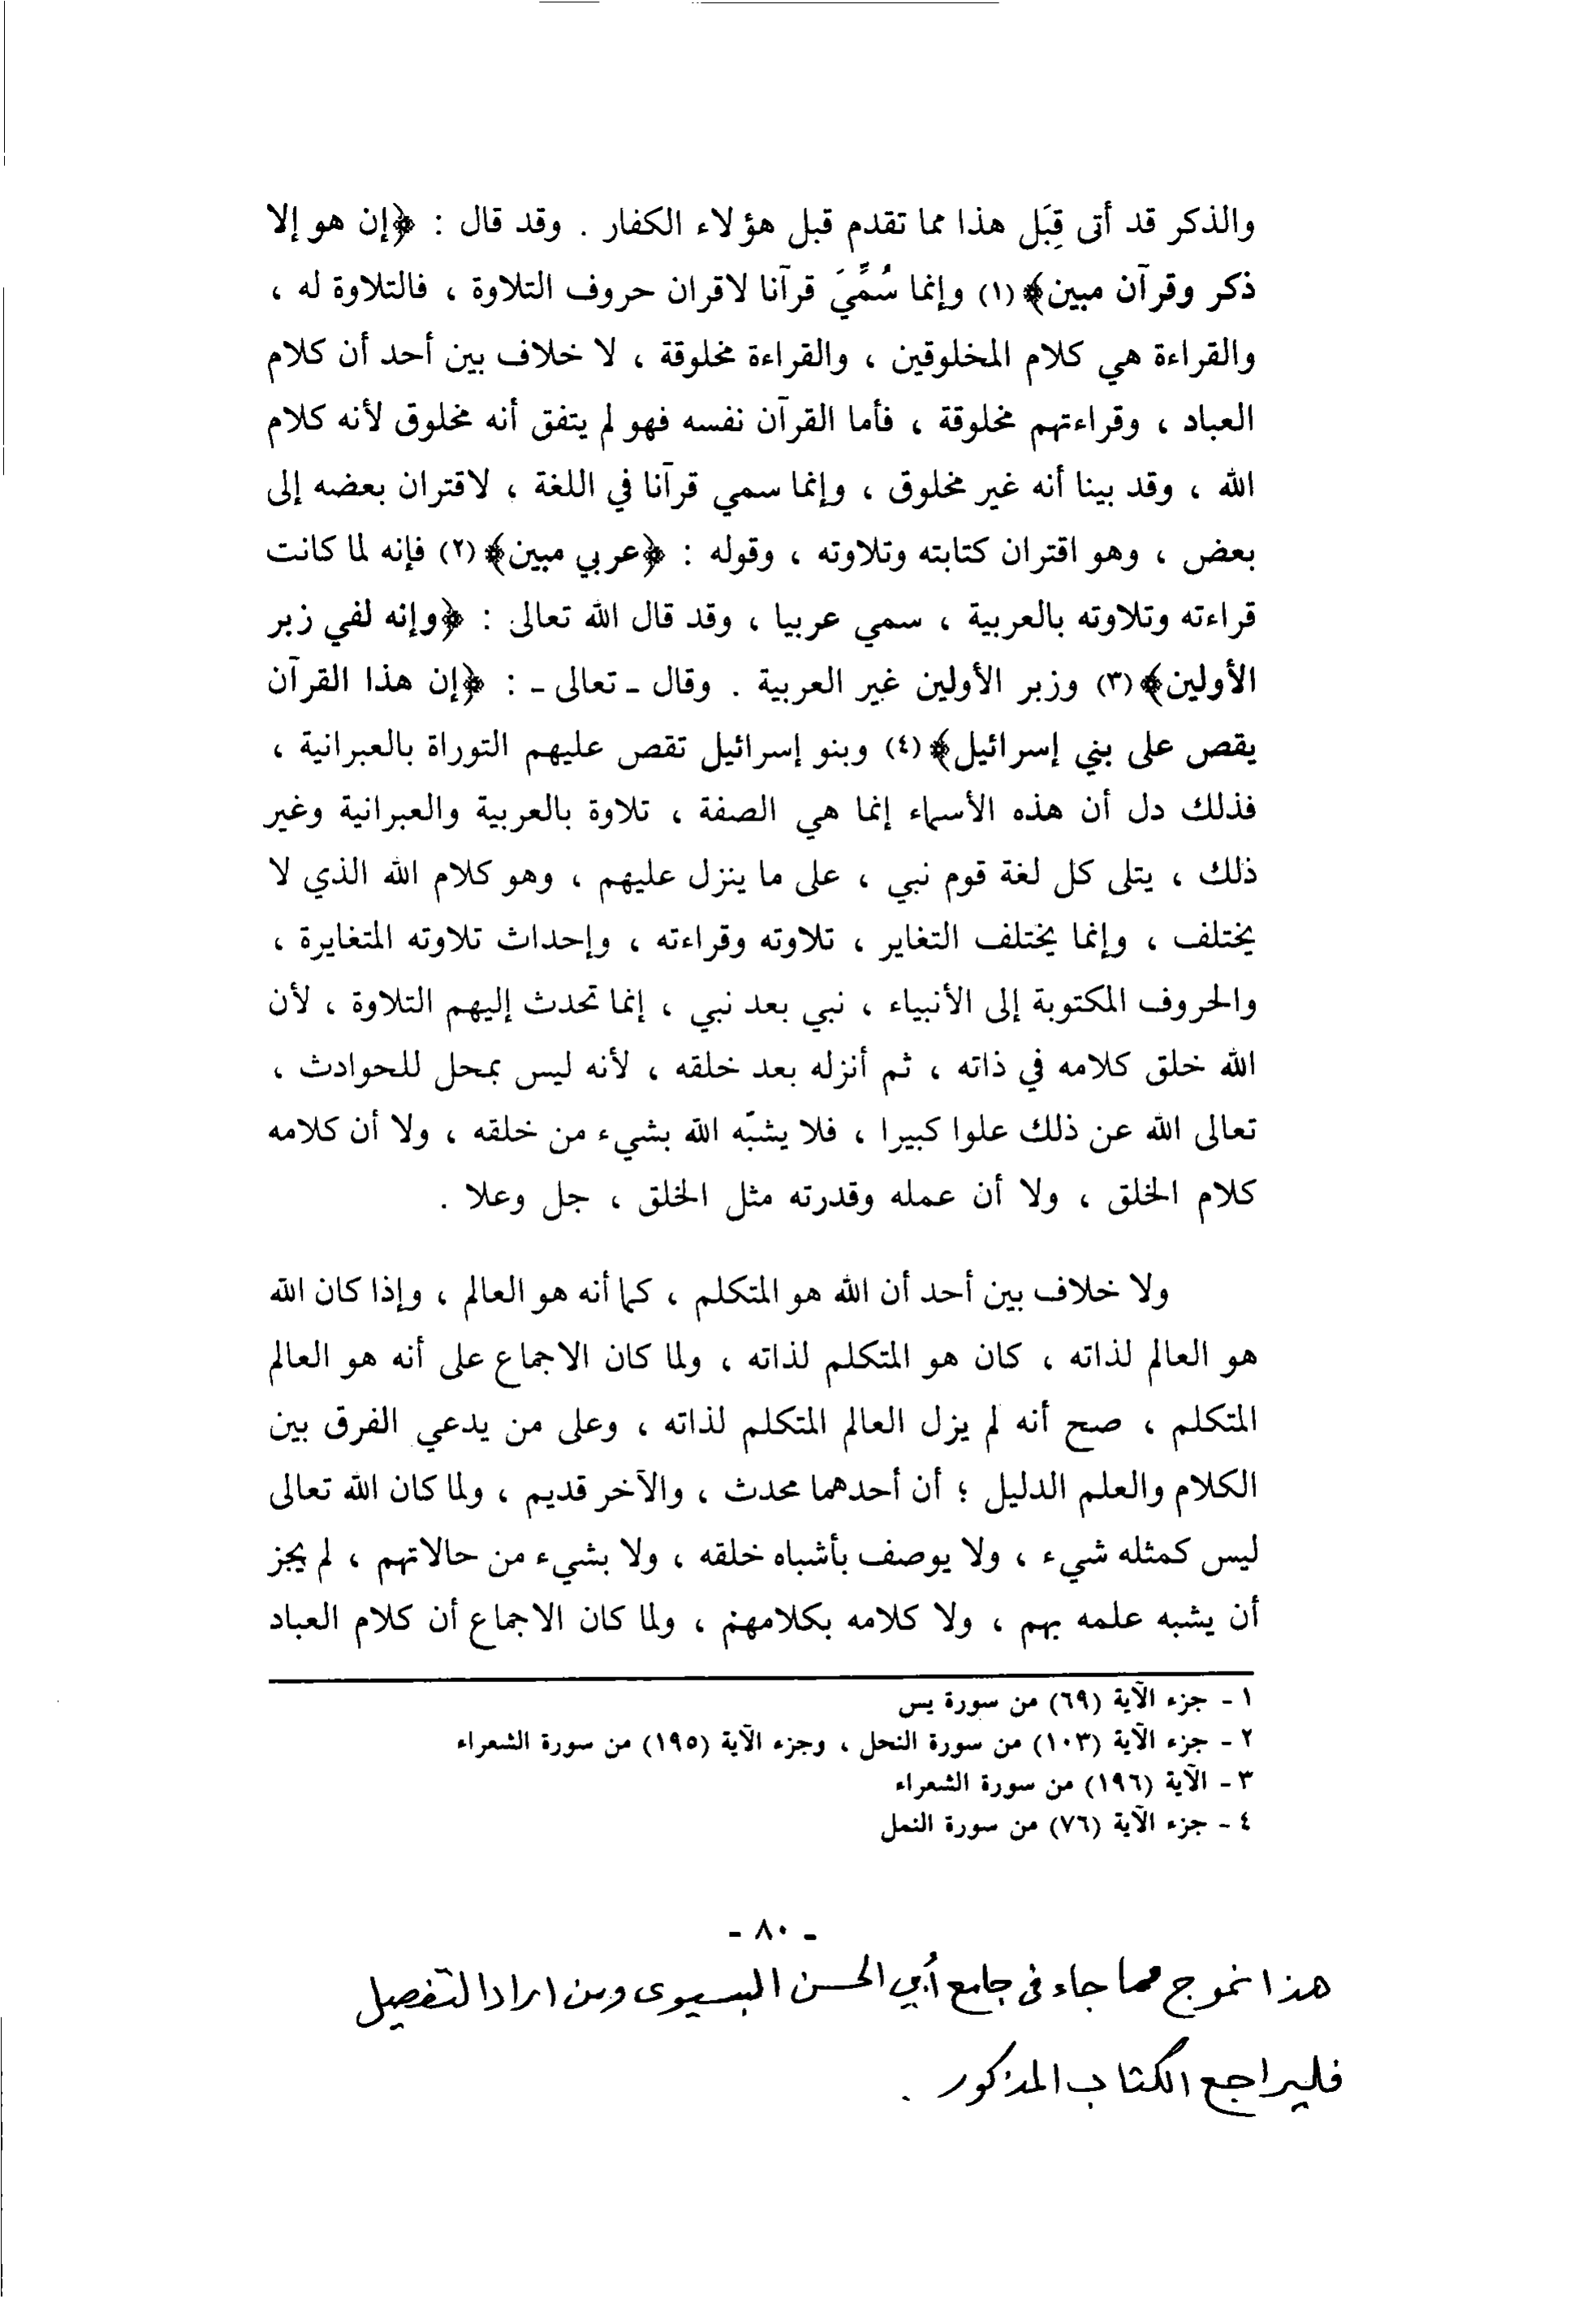 والذكر قد أتى قِبَل هذا مما تقدم قبل هؤلاء الكفار . وقد قال : ﴿إن هو إلا
ذكر وقرآن مبين﴾ (١) وإنما سُمِّيَ قرآنا لاقران حروف التلاوة ، فالتلاوة له ،
والقراءة هي كلام المخلوقين ، والقراءة مخلوقة ، لا خلاف بين أحد أن كلام
العباد ، وقراءتهم مخلوقة ، فأما القرآن نفسه فهو لم يتفق أنه مخلوق لأنه كلام
الله ، وقد بينا أنه غير مخلوق ، وإنما سمي قرآنا في اللغة ، لاقتران بعضه إلى
بعض ، وهو اقتران كتابته وتلاوته ، وقوله : ﴿عربي مبين﴾ (٢) فإنه لما كانت
قراءته وتلاوته بالعربية ، سمي عربيا ، وقد قال الله تعالى : ﴿وإنه لفي زبر
الأولين﴾ (٣) وزبر الأولين غير العربية . وقال - تعالى - : ﴿إن هذا القرآن
يقص على بني إسرائيل﴾ (٤) وبنو إسرائيل تقص عليهم التوراة بالعبرانية ،
فذلك دل أن هذه الأسماء إنما هي الصفة ، تلاوة بالعربية والعبرانية وغير
ذلك ، يتلى كل لغة قوم نبي ، على ما ينزل عليهم ، وهو كلام الله الذي لا
يختلف ، وإنما يختلف التغاير ، تلاوته وقراءته ، وإحداث تلاوته المتغايرة ،
والحروف المكتوبة إلى الأنبياء ، نبي بعد نبي ، إنما تحدث إليهم التلاوة ، لأن
الله خلق كلامه في ذاته ، ثم أنزله بعد خلقه ، لأنه ليس بمحل للحوادث ،
تعالى الله عن ذلك علوا كبيرا ، فلا يشبّه الله بشيء من خلقه ، ولا أن كلامه
كلام الخلق ، ولا أن عمله وقدرته مثل الخلق ، جل وعلا .
ولا خلاف بين أحد أن الله هو المتكلم ، كما أنه هو العالم ، وإذا كان الله
هو العالم لذاته ، كان هو المتكلم لذاته ، ولما كان الاجماع على أنه هو العالم
المتكلم ، صح أنه لم يزل العالم المتكلم لذاته ، وعلى من يدعي الفرق بين
الكلام والعلم الدليل ؛ أن أحدهما محدث ، والآخر قديم ، ولما كان الله تعالى
ليس كمثله شيء ، ولا يوصف بأشباه خلقه ، ولا بشيء من حالاتهم ، لم يجز
أن يشبه علمه بهم ، ولا كلامه بكلامهم ، ولما كان الاجماع أن كلام العباد
١ - جزء الآية (٦٩) من سورة يس
٢ - جزء الآية (١٠٣) من سورة النحل ، وجزء الآية (١٩٥) من سورة الشعراء
٣ - الآية (١٩٦) من سورة الشعراء
٤ - جزء الآية (٧٦) من سورة النمل
- ٨٠ -
هذا نموج مما جاء في جامع أبي الحسن البسيوى ومن اراد التفصيل
فليراجع الكتاب المذكور .